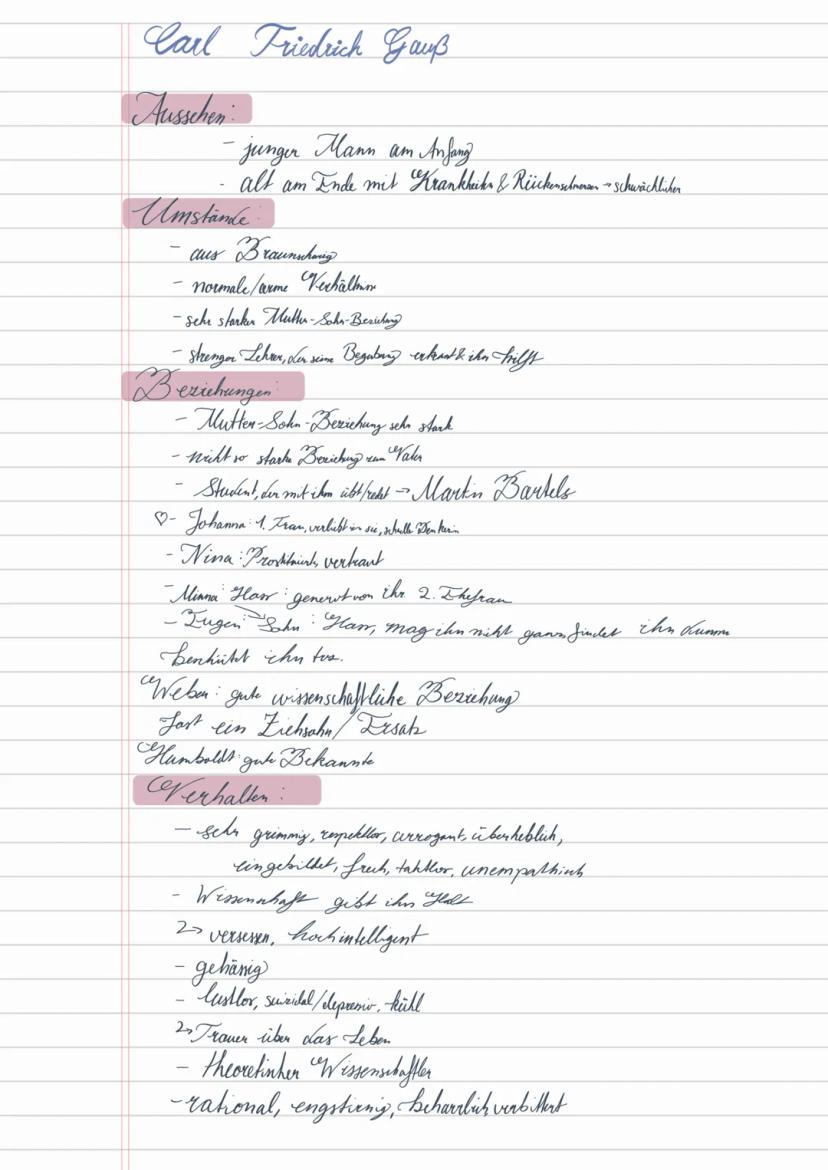 Carl Friedrich Gauß
Aussehen:
- junger Mann am Anfang
- alt am Ende mit Krankheiten & Rückenschmerzen → schwächlicher
Umstände:
- aus Braunschweig
- normale/arme Verhältnisse
- sehr starke Mutter-Sohn-Beziehung
- strenger Lehrer, der seine Begabung erkannt & ihm hilft
Beziehungen:
- Mutter-Sohn-Beziehung sehr stark
- nicht so starke Beziehung zum Vater
- Student, der mit ihm übt/redet → Martin Bartels
♡- Johanna: 1. Frau, verliebt in sie, schnelle Denkerin
- Nina: Prostituierte, vertraut
- Minna: Hass: genervt von ihr 2. Ehefrau
- Eugen → Sohn: Hass, mag ihn nicht ganz findet ihn dumm
ihn los.
Weber: gute wissenschaftliche Beziehung
Fast ein Ziehsohn/Ersatz
Humboldt: gute Bekannte
Verhalten:
- sehr grimmig, respektlos, arrogant, überheblich,
eingebildet, frech, taktlos, unempathisch
- Wissenschaft gibt ihm Halt
↳ versessen, hochintelligent
- gehässig
- lustlos, suizidal/depressiv, kühl
↳ Trauer über das Leben
- theoretischer Wissenschaftler
- rational, engstirnig, beharrlich verbittert